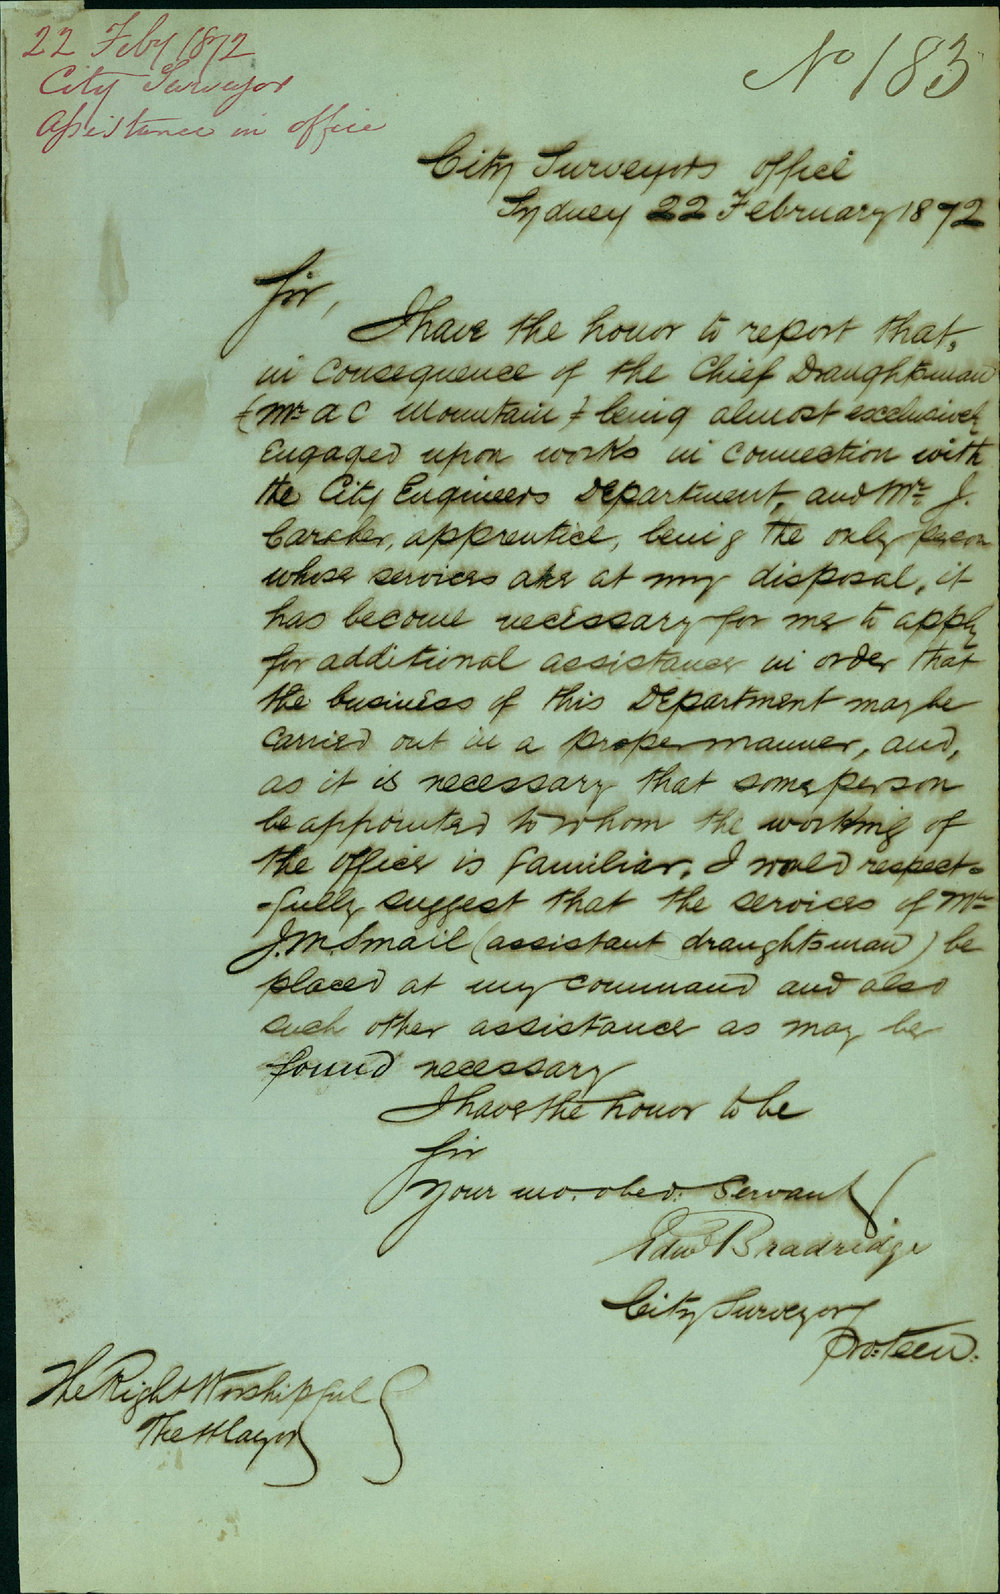 22 Feby 1872
City Surveyor
Assistance in office
No 183
City Surveyors office
Sydney 22 February 1872
Sir,
I have the honor to report that,
in consequence of the Chief Draughtsman
(Mr A C Mountain) being almost exclusively
engaged upon works in connection with
the City Engineers Department, and Mr J.
apprentice, being the only person
whose services are at my disposal, it
has become necessary for me to apply
for additional assistance in order that
the business of this Department may be
carried out in a proper manner, and,
as it is necessary that some person
be appointed to whom the working of
the office is familiar, I would respect=
=fully suggest that the services of Mr
J. M. Smail (assistant draughtsman) be
placed at my command and also
such other assistance as may be
found necessary
I have the honor to be
Sir
Your mo. obed. Servant
Edwd Bradridge
City Surveyor
Pro: Tem.
The Right Worshipful
The Mayor